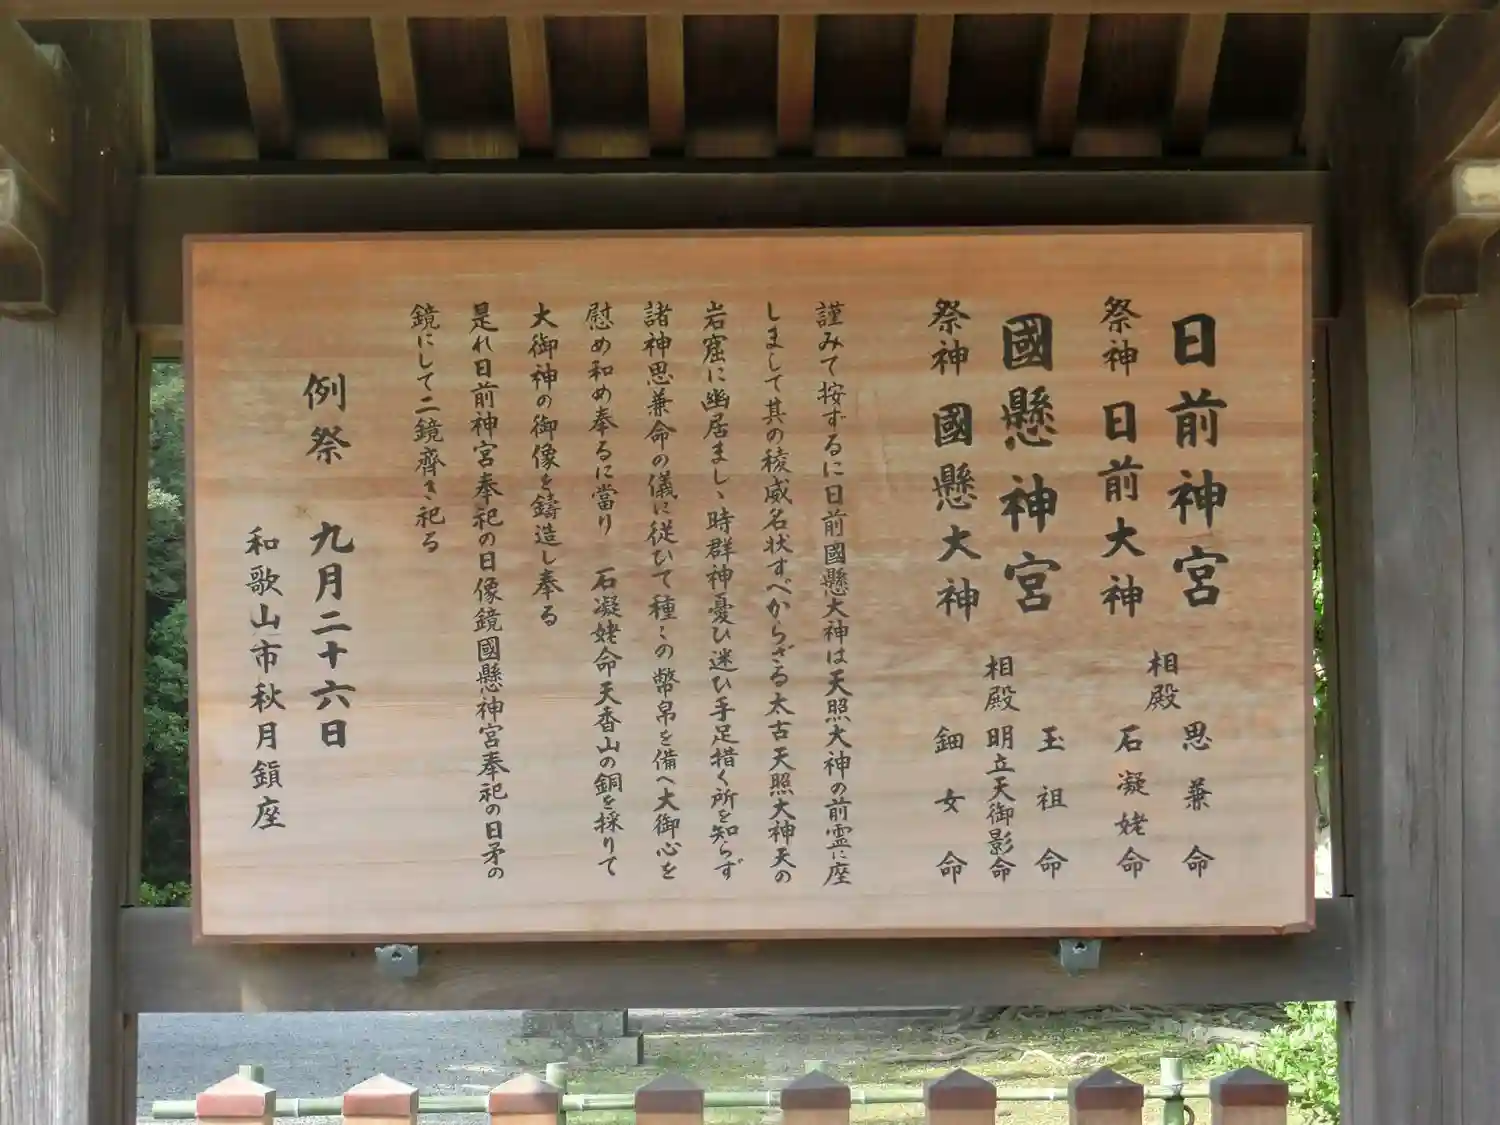 日前神宮
祭神 日前大神
相殿 思兼命
石凝姥命
國懸神宮
祭神 國懸大神
相殿 玉祖命
明立天御影命
鈿女命
謹みて按ずるに日前國懸大神は天照大神の前霊に座
しまして其の稜威名状すべからざる太古天照大神天の
岩窟に幽居ましゝ時群神憂ひ迷ひ手足措く所を知らず
諸神思兼命の儀に従ひて種〻の幣帛を備へ大御心を
慰め和め奉るに當り 石凝姥命天香山の銅を採りて
大御神の御像を鑄造し奉る
是れ日前神宮奉祀の日像鏡國懸神宮奉祀の日矛の
鏡にして二鏡齊き祀る
例祭 九月二十六日
和歌山市秋月鎮座